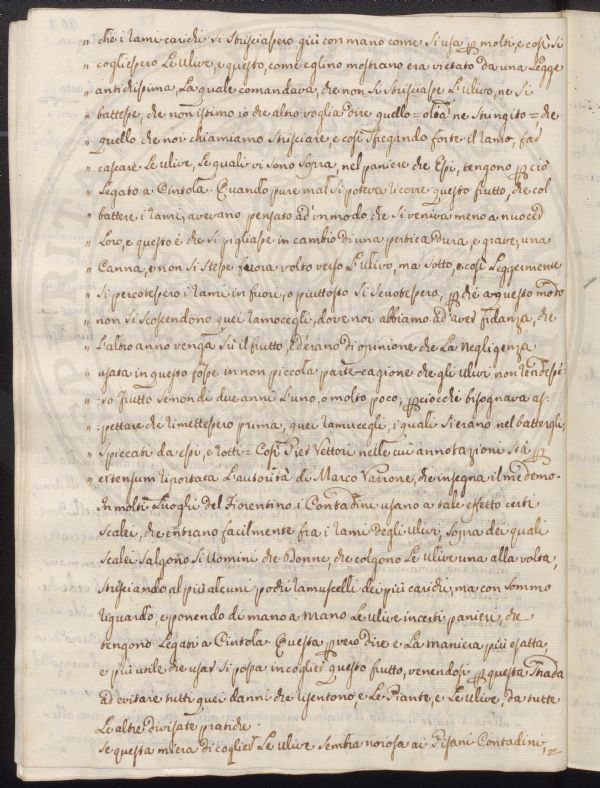 " che i rami carichi si strisciassero giù con mano come si usa p molti, e così si
" cogliessero le ulive, e questo, come eglino mostrano era vietato da una legge
" antichissima, la quale comandava, che non si strisciasse l'ulivo, ne si
" battesse, che non istimo io che altro voglia dire quello = oleã ne stringito = che
" quello che noi chiamiamo strisciare, e così sfregando forte il ramo, far
" cascare le ulive, le quali vi sono sopra, nel paniere che essi, tengono p ciò
" legato a cintola. Quando pure mal si poteva ricorre questo frutto, che col
" battere i rami, avevano pensato ad un modo che si veniva meno a nuocer
" loro, e questo è che si pigliasse in cambio di una pertica dura, e grave, una
" canna, e non si stesse fuora volto verso l'ulivo, ma sotto, e così leggermente
" si percotessero i rami in fuori, o piuttosto si scuotessero, p chè a questo modo
" non si scoscendono quei ramocegli, dove noi abbiamo ad aver fidanza, che
" l'altro anno venga sù il frutto, ed erano di opinione che la negligenza
" usata in questo fosse in non piccola parte cagione che gli ulivi non rendesse=
" ro frutto se non di due anni l'uno, o molto poco; p ciocchè bisognava as=
" pettare che rimettessero prima, quei ramucegli, i quali si erano nel battergli,
" spiccati da essi, e rotti = Così Pier Vettori nelle cui annotazioni stà p
extensum riportata l'autorità di Marco Varrone, che insegna il medemo.
In molti luoghi del Fiorentino i Contadini usano a tale effetto certi
scalei, che entrano facilmente fra i rami degli ulivi, sopra dei quali
scalei salgono sì Uomini che Donne, che colgono le ulive una alla volta,
strisciando al più alcuni pochi ramuscelli dei più carichi, ma con sommo
riguardo, e ponendo di mano a mano le ulive in certi panieri, che
tengono legati a cintola. Questa p vero dire è la maniera più esatta,
e più utile che usar si possa in coglier questo frutto, venendosi p questa strada
ad evitare tutti quei danni che risentono, e le Piante, e le Ulive, da tutte
le altre divisate pratiche.
Se questa mãera di coglier le ulive sembra noiosa ai Pisani Contadini,=